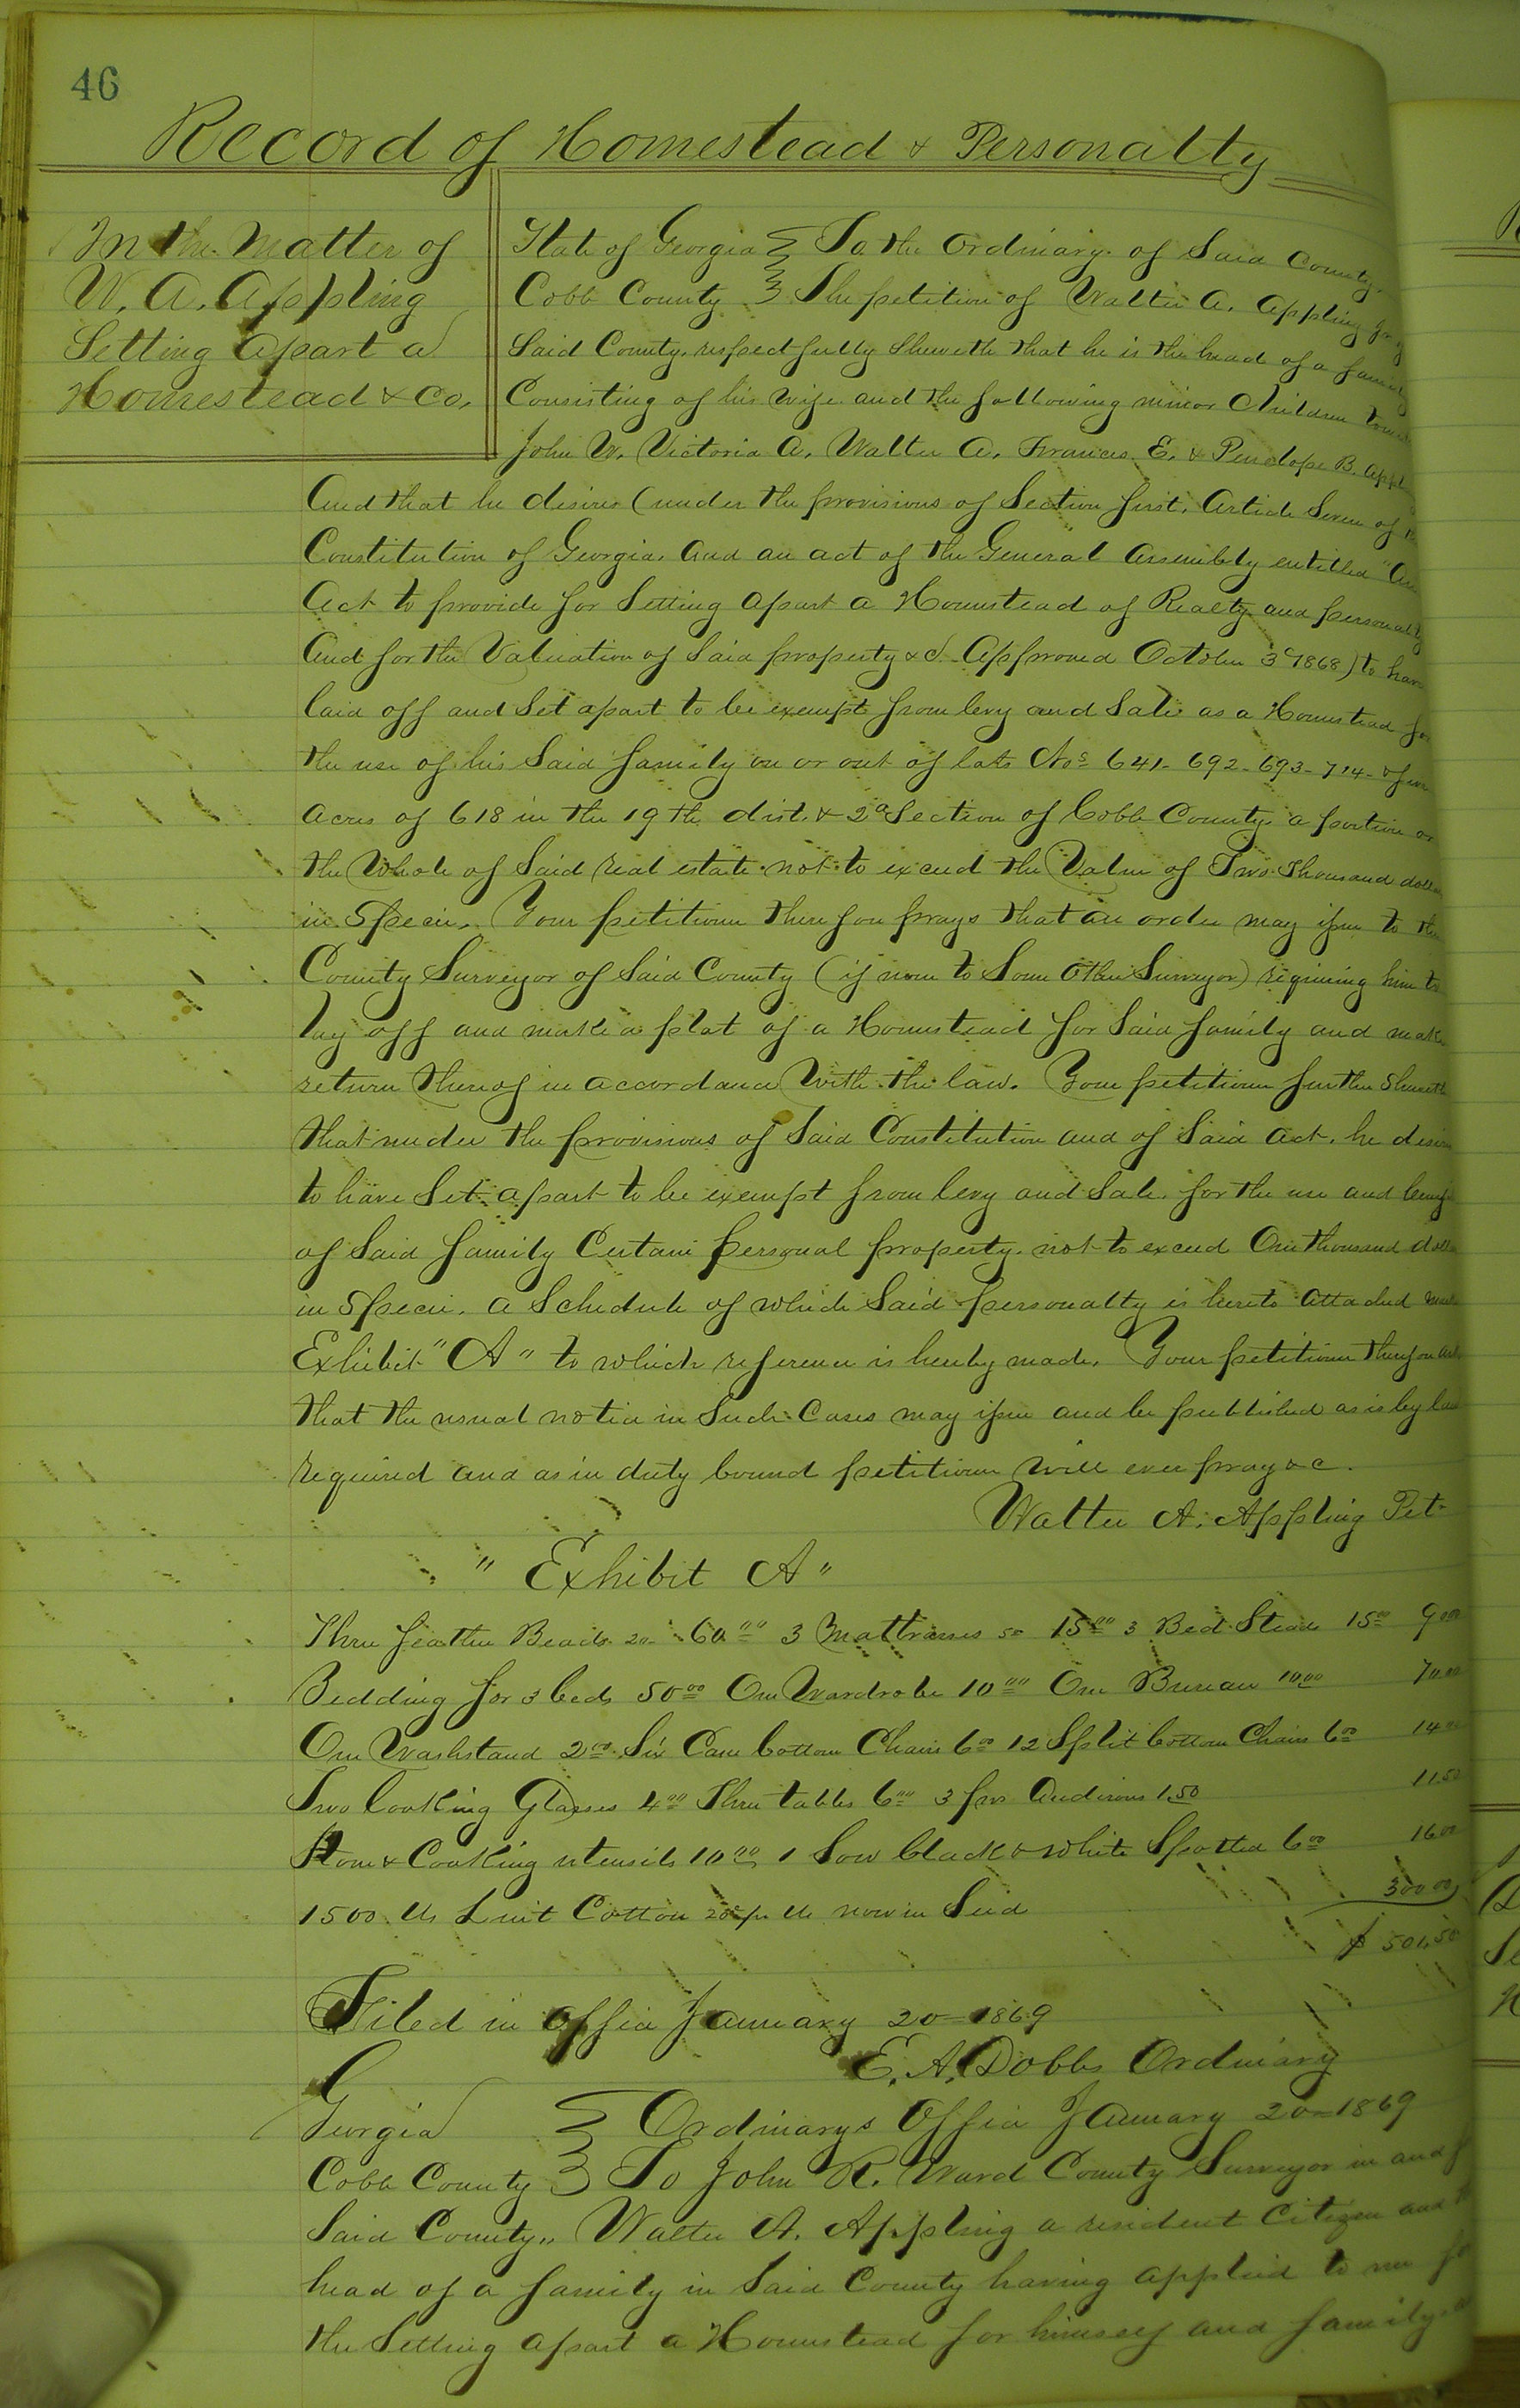 46
Record of Homestead & Personalty
In the Matter of
W. A. Appling
Setting Apart a
Homestead & Co,
State of Georgia To the Ordinary of Said County.
Cobb County The petition of Walter A. Appling
Said County, respectfully Sheweth that he is the head of a family
Consisting of his Wife and the following minor Children
John W. Victoria A. Walter A. Frances E. & Penelope B.
And that he desires (under the provisions of Section first, Article Seven of
Constitution of Georgia, and an act of the General Assembly entitled "An
Act to provide for Setting Apart a Homestead of Realty and personalty
And for the Valuation of Said property &c Approved October 3d 1868) to have
laid off and Set apart to be exempt from levy and Sale as a Homestead for
the use of his Said family on or out of lots Nos 641- 692- 693- 714- &
Acres of 618 in the 19th dist. & 2d Section of Cobb County a portion or
the Whole of Said real estate not to exceed the Value of Two Thousand dollars
in Specie. Your petitioner therefore prays that an order may issue to the
County Surveyor of Said County (if none to Some Other Surveyor) requiring him to
lay off and make a plat of a Homestead for Said family and make
return thereof in accordance With the law. Your petitioner further Sheweth
that under the provisions of Said Constitution and of Said Act, he desires
to have Set apart to be exempt from levy and Sale for the use and benefit
of Said family Certain personal property not to exceed One thousand dollars
in Specie. a Schedule of which Said personalty is hereto attached
Exhibit "A" to which reference is hereby made. Your petitioner therefore asks
that the usual notice in Such Cases may issue and be published as is by law
required and as in duty bound petitioner Will ever pray &c.
Walter A. Appling Pet-
" Exhibit A "
Three feather Beads 20- 60 00 3 Mattrasses 5 00 15 00 3 Bed Steads 15 00 90 00
Bedding for 3 beds 50 00 One Wardrobe 10 00 One Bureau 10 00 70 00
One Washstand 2 00 Six Cane bottom Chairs 6 00 12 Split bottom Chairs 6 00 14 00
Two looking Glasses 4 00 Three tables 6 00 3 prs Andirons 1.50 11 50
Stove & Cooking utensils 10 00 1 Sow black & White Spotted 6 00 16 00
1500 lbs Lint Cotton 20c pr lb now in Seed 300 00
$ 501.50
Filed in Office January 20 1869
E. A. Dobbs Ordinary
Georgia Ordinarys Office January 20 1869
Cobb County To John R. Ward County Surveyor in and
Said County,, Walter A. Appling a resident Citizen and
head of a family in Said County having applied to me for
the Setting apart a Homestead for himself and family